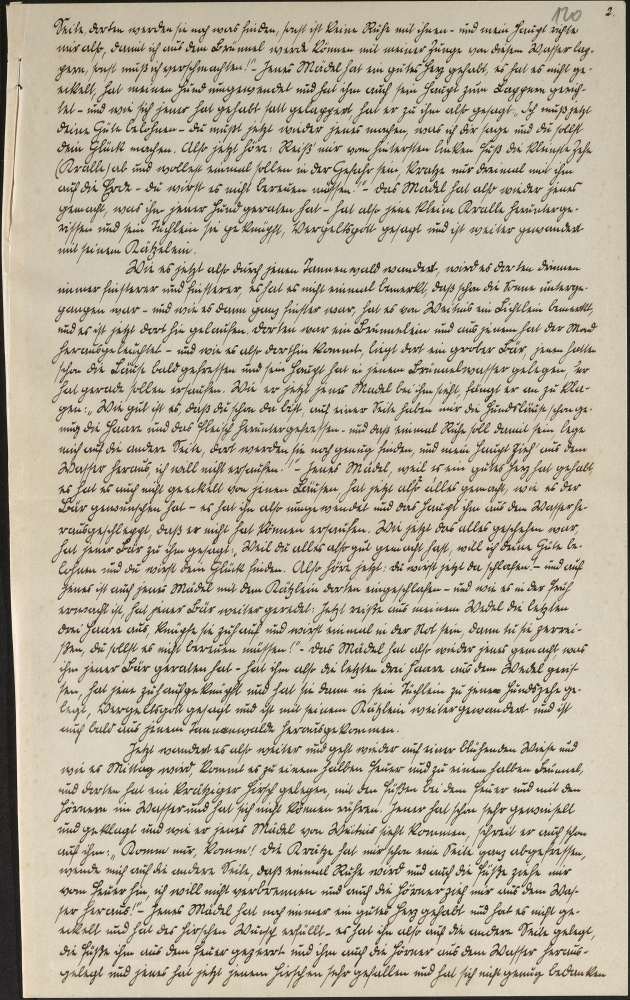 120 2.
Seite, dorten werden sie noch was finden, sonst ist keine Ruhe mit ihnen - und mein Haupt richte
mir also, damit ich aus dem Brünnel werde können mit meiner Zunge von diesem Wasser lap-
pern, sonst muß ich verschmachten!" Jenes Mädel hat ein gutes Herz gehabt, es hat es nicht ge-
eckelt, hat meinen Hund umgewendet und hat ihm auch sein Haupt zum Lappern gerich-
tet - und wie sich jener hat gehabt satt gelappert hat er zu ihm also gesagt, Ich muß jetzt
deine Güte belohnen - du mußt jetzt wieder jenes machen, was ich dir sage und du sollst
dein Glück machen. Also jetzt höre: Reiß mir vom hintersten linken Fuß die kleinste Zehe
(Kralle) ab und wolltest einmal sollen in der Gefahr sein, kratze nur dreimal mit ihm
auf die Erde - du wirst es nicht bereuen müssen!" - Das Mädel hat also wieder jenes
gemacht, was ihm jener Hund geraten hat - hat also jene kleine Kralle herunterge-
rissen und sein Tüchlein sie geknüpft, Vergeltsgott gesagt und ist weiter gewandert
mit seinem Kätzelein.
Wie es jetzt also durch jenen Tannenwald wandert, wird es dorten drinnen
immer finsterer und finsterer, es hat es nicht einmal bemerkt, daß schon die Sonne unterge-
gangen war - und wie es dann ganz finster war, hat es von Weitnis ein Lichtlein bemerkt,
und es ist jetzt dort hin gelaufen. Dorten war ein Brünnelein und aus jenem hat der Mond
herausgeleuchtet - und wie es also dorthin kommt, liegt dort ein grober Bär, jenen hatten
schon die Läuse bald gefressen und sein Haupt hat in jenem Brünnelwasser gelegen, er
hat gerade sollen ersaufen. Wie er jetzt jenes Mädel bei ihm sieht, fangt er an zu kla-
gen: „Wie gut ist es, daß du schon da bist, auf einer Seite haben mir die Hundsläuse schon ge-
nug die Haare und das Fleisch heruntergefressen - und daß einmal Ruhe soll damit sein lege
mich auf die andere Seite, dort werden sie noch genug finden, und mein Haupt zieh' aus dem
Wasser heraus, ich will nicht ersaufen!" - Jenes Mädel, weil es ein gutes Herz hat gehabt,
es hat es auch nicht geeckelt von jenen Läusen hat jetzt also alles gemacht, wie es der
Bär gewünschen hat - es hat ihn also umgewendet und das Haupt ihm aus dem Wasser he-
rausgeschleppt, daß er nicht hat können ersaufen. Wie jetzt das alles geschehen war,
hat jener Bär zu ihm gesagt: „Weil du alles also gut gemacht hast, will ich deine Güte be-
lohnen und du wirst dein Glück finden. Also höre jetzt: du wirst jetzt da schlafen." - und auch
Jenes ist auch jenes Mädel mit dem Kätzlein dorten eingeschlafen - und wie es in der Früh
erwacht ist, hat jener Bär weiter geredet: Jetzt reiße aus meinem Wedel die letzten
drei Haare aus, knüpfe sie zuhauf und wirst einmal in der Not sein, dann tu sie zerrei-
ßen, du sollst es nicht bereuen müssen!" - Das Mädel hat also wieder jenes gemacht was
ihm jener Bär geraten hat - hat ihm also die letzten drei Haare aus dem Wedel geris-
sen, hat jene zuhaufgeknüpft und hat sie dann in sein Tüchlein zu jener Hundszehe ge-
legt, Vergeltsgott gesagt und ist mit seinem Kätzlein weitergewandert und ist
auch bald aus jenem Tannenwalde herausgekommen.
Jetzt wandert es also weiter und geht wieder auf einer blühenden Wiese und
wie es Mittag wird, kommt es zu einem halben Feuer und zu einem halben Brünnel,
und dorten hat ein krätziger Hirsch gelegen, mit den Füßen bei dem Feuer und mit den
Hörnern im Wasser und hat sich nicht können rühren. Jener hat schon sehr gewinselt
und geklagt und wie er jenes Mädel von Weitnis sieht kommen, schreit er auch schon
auf ihm: „Komm nur, komm! Die Krätze hat mir schon eine Seite ganz abgefressen,
wende mich auf die andere Seite, daß einmal Ruhe wird und auch die Füße ziehe mir
vom Feuer hin, ich will nicht verbrennen und auch die Hörner zieh mir aus dem Was-
ser heraus!" - Jenes Mädel hat noch immer ein gutes Herz gehabt und hat es nicht ge-
eckelt und hat des Hirschen Wunsch erfüllt - es hat ihn also auf die andere Seite gelegt,
die Füße ihm aus dem Feuer gezerrt und ihm auch die Hörner aus dem Wasser heraus-
gelegt und jenes hat jetzt jenem Hirschen sehr gefallen und hat sich nicht genug bedanken